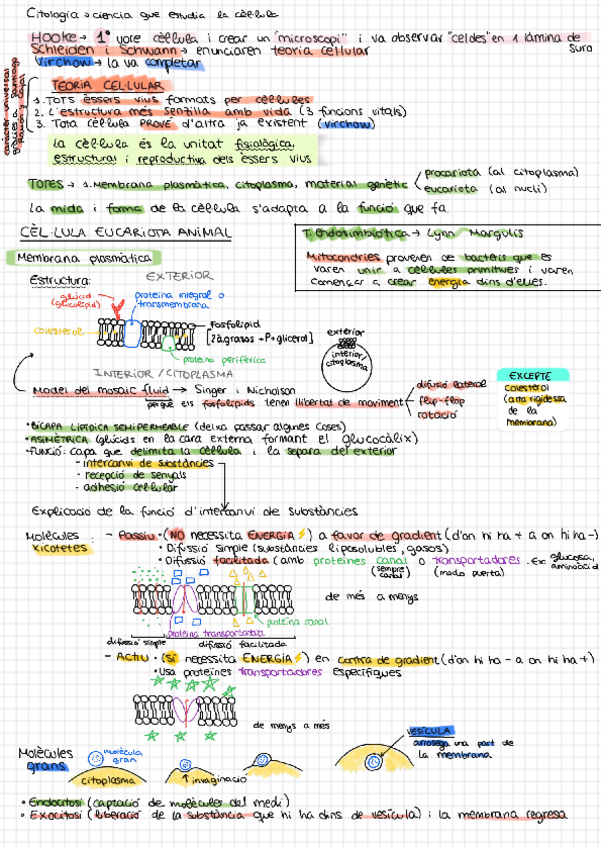 Citologia → ciència que estudia la cèl·lula
Hooke → 1º vore cèl·lula i crear un "microscopi" i va observar "celdes" en 1 làmina de
Suro
Schleiden i Schwann → enunciaren teoria cel·lular
Virchow → la va completar
TEORIA CEL·LULAR
1. TOTS èssers vius formats per cèl·lules
2. L'estructura més senzilla amb vida (3 funcions vitals)
3. Tota cèl·lula PROVÉ d'altra ja existent (virchow)
caràcter universal
gràcies a Santiago
Ramón y Cajal
La cèl·lula és la unitat fisiològica,
estructural i reproductiva dels èssers vius
TOTES → 1. Membrana plasmàtica, citoplasma, material genètic
procariota (al citoplasma)
eucariota (al nucli)
La mida i forma de la cèl·lula s'adapta a la funció que fa.
CÈL·LULA EUCARIOTA ANIMAL
T. endosimbiòtica → Lynn Margulis
Mitocondries provenen de bacteris que es
varen unir a cèl·lules primitives i varen
començar a crear energia dins d'elles.
Membrana plasmàtica
Estructura:
EXTERIOR
glúcid
(glicolípid)
proteïna integral o
transmembrana
colesterol
Fosfolípid
[2 àc. grasos + P + glicerol]
proteïna perifèrica
exterior
interior/
citoplasma
INTERIOR / CITOPLASMA
Model del mosaic fluid → Singer i Nicholson
perquè els fosfolípids tenen llibertat de moviment
difusió lateral
flip-flop
rotació
EXCEPTE
colesterol
(aita rigidessa
de la
membrana)
• BICAPA LIPÍDICA SEMIPERMEABLE (deixa passar algunes coses)
• ASIMÈTRICA (glúcids en la cara externa formant el glucocàlix)
• FUNCIÓ: capa que delimita la cèl·lula i la separa de l'exterior
- intercanvi de substàncies
- recepció de senyals
- adhesió cel·lular
Explicació de la funció d'intercanvi de substàncies
Molècules
xicotetes
- Passiu • (NO necessita ENERGIA⚡) a favor de gradient (d'on hi ha + a on hi ha -)
• Difussió simple (substàncies liposolubles, gasos)
• Difussió facilitada (amb proteïnes canal o transportadores. Ex glucosa,
aminoàcid
(sempre
canal)
(modo puerta)
de més a menys
proteïna canal
proteïna transportadora
difussió simple
difussió facilitada
- ACTIU • (Sí necessita ENERGIA⚡) en contra de gradient (d'on hi ha - a on hi ha +)
• Usa proteïnes transportadores específiques
de menys a més
Molècules
grans
molècula
gran
citoplasma
↑ invaginació
VESÍCULA
arrosega una part de
la membrana
• Endocitosi (captació de molècules del medi)
• Exocitosi (liberació de la substància que hi ha dins de vesícula) i la membrana regresa